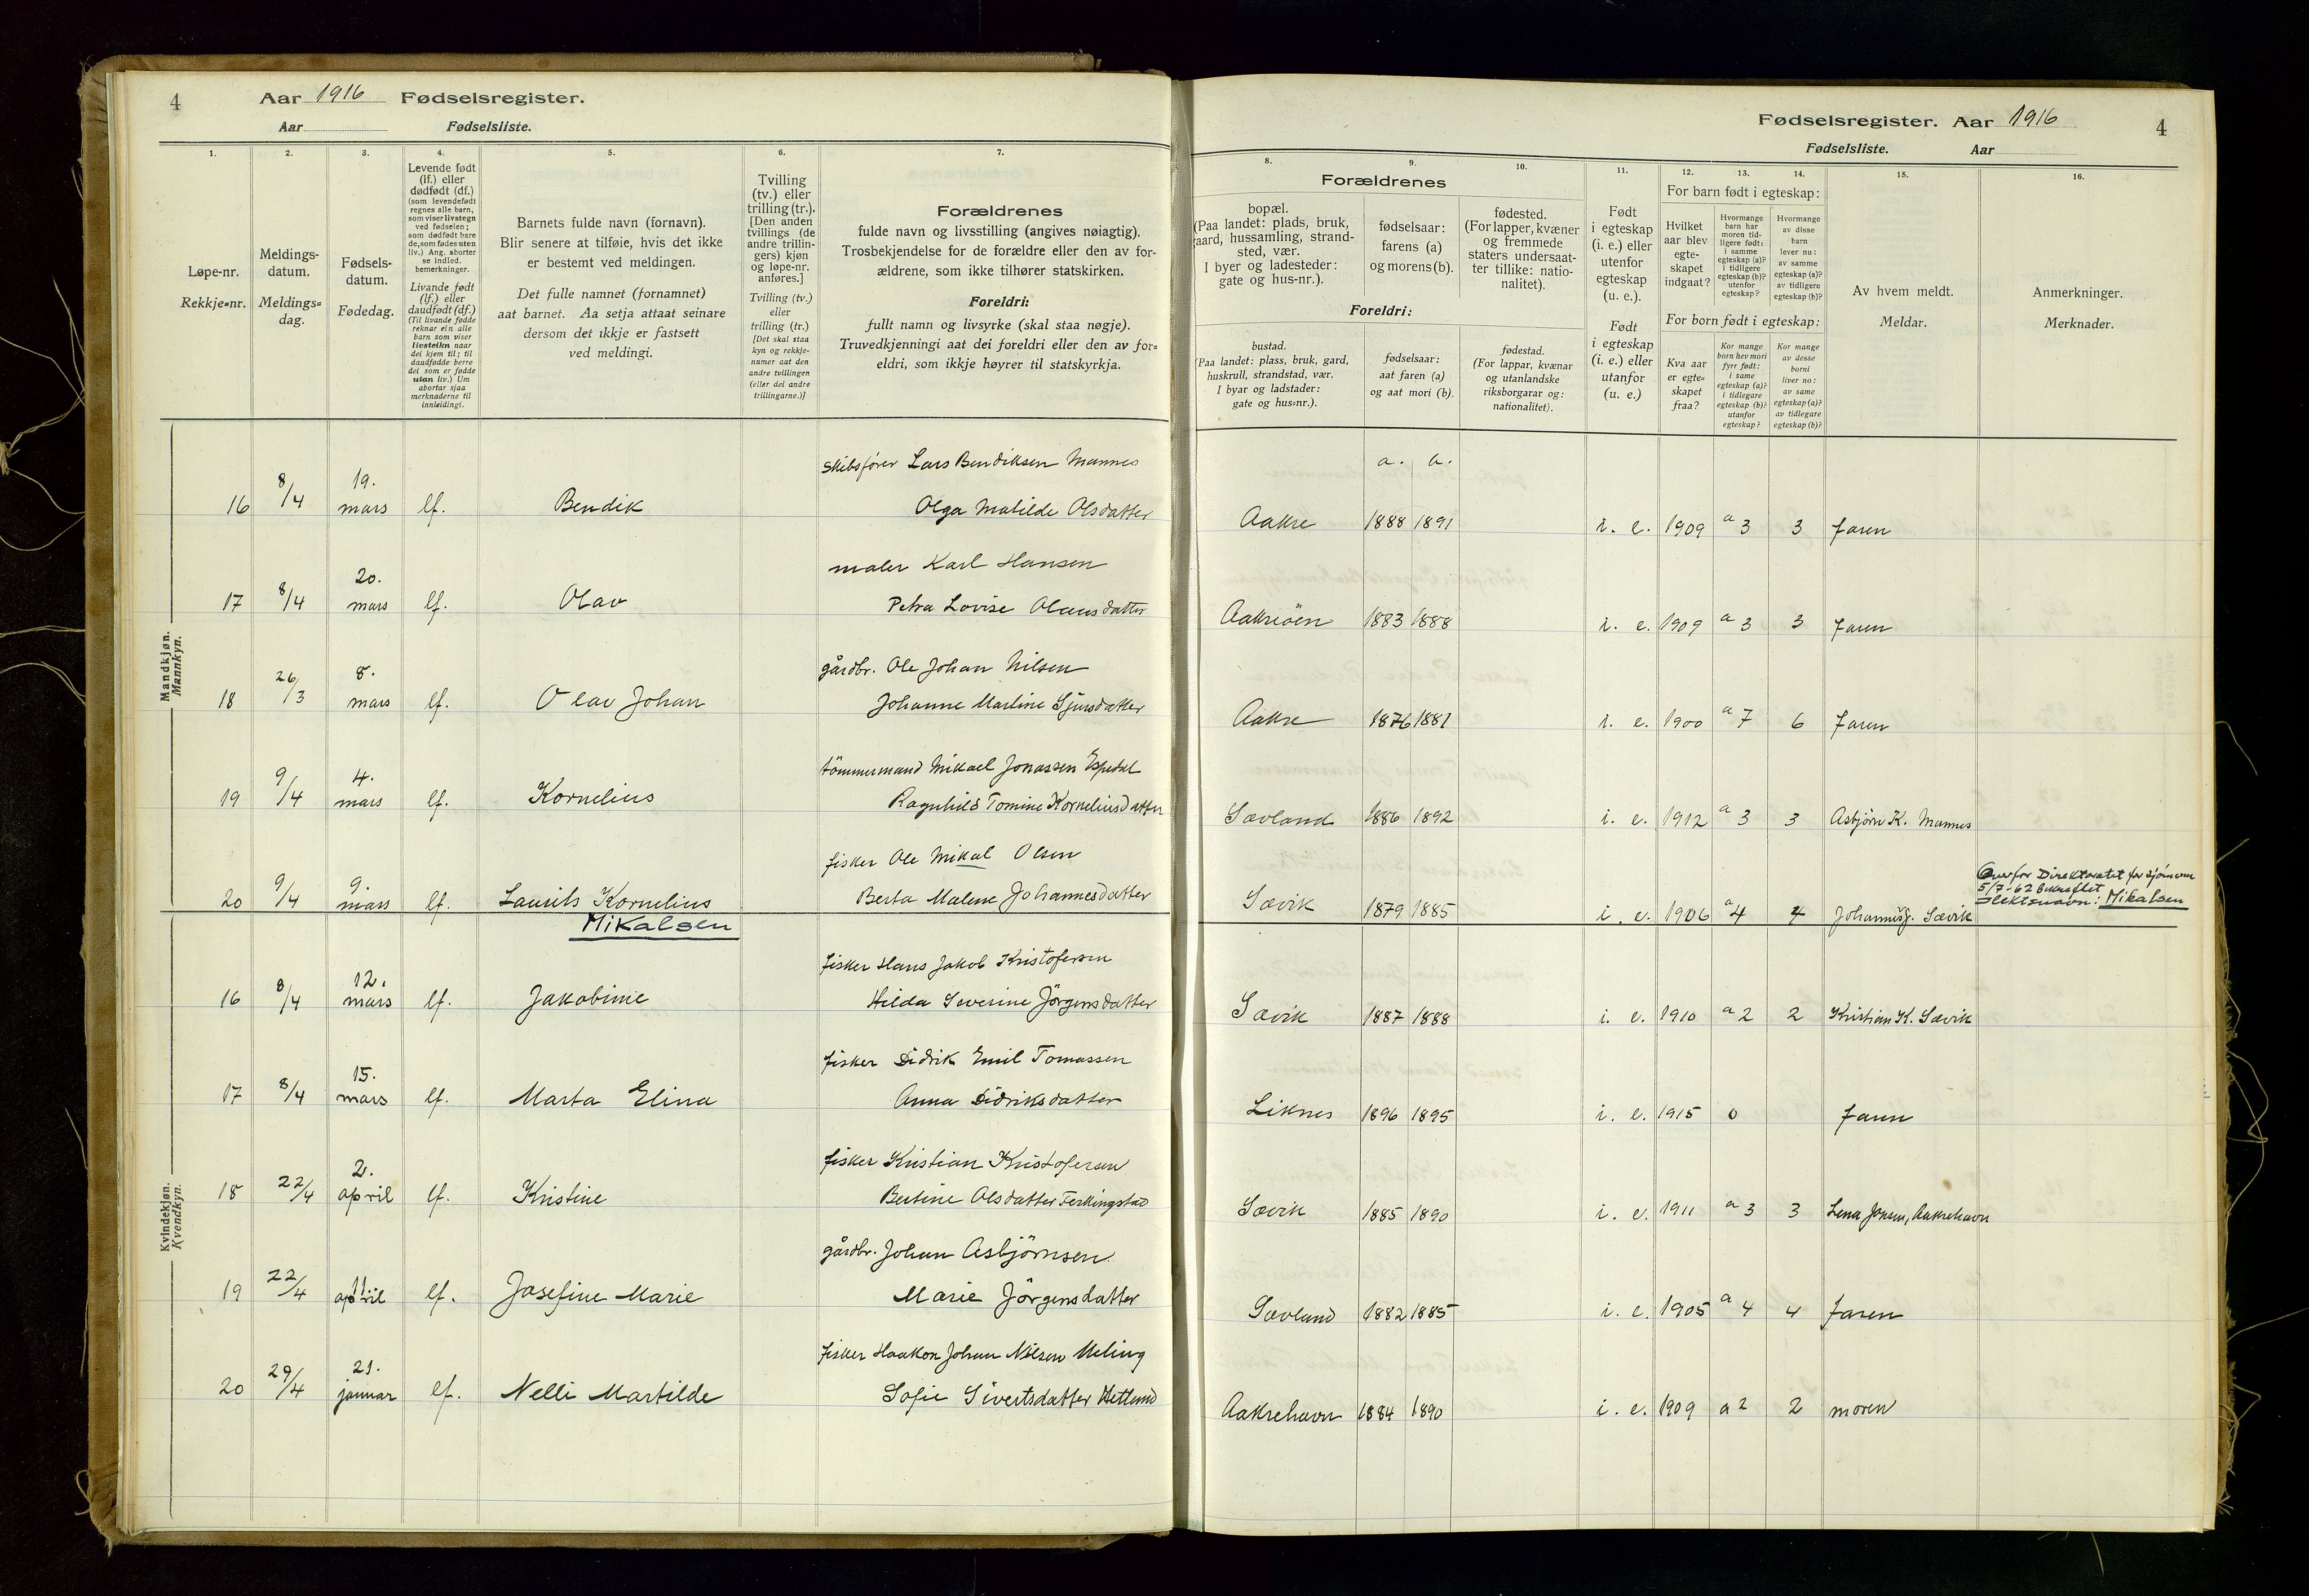 4 Aar 1916 Fødselsregister.
Aar Fødselsliste.
1. 2. 3. 4. 5. 6. 7.
Løpe-nr.
Rekkje=nr.
Meldings-
datum.
Meldings=
dag.
Fødsels-
datum.
Fødedag.
Levende født
(lf.) eller
dødfødt (df.)
(som levendefødt
regnes alle barn,
som viser livstegn
ved fødselen;
som dødfødt bare
de, som fødes uten
liv.) Ang. aborter
se indled.
bemerkninger.
Livande født
(lf.) eller
daudfødt (df.)
(Til livande fødde
reknar ein alle
barn som viser
livsteikn naar
dei kjem til; til
daudfødde berre
dei som er fødde
utan liv.) Um
abortar sjaa
merknaderne til
innleidingi.
Barnets fulde navn (fornavn).
Blir senere at tilføie, hvis det ikke
er bestemt ved meldingen.
Det fulle namnet (fornamnet)
aat barnet. Aa setja attaat seinare
dersom det ikkje er fastsett
ved meldingi.
Tvilling
(tv.) eller
trilling (tr.).
[Den anden
tvillings (de
andre trillin-
gers) kjøn
og løpe-nr.
anføres.]
Tvilling (tv.)
eller
trilling (tr.)
[Det skal staa
kyn og rekkje-
nummer aat den
andre tvillingen
(eller dei andre
trillingarne.)]
Forældrenes
fulde navn og livsstilling (angives nøiagtig).
Trosbekjendelse for de forældre eller den av for-
ældrene, som ikke tilhører statskirken.
Foreldri:
fullt namn og livsyrke (skal staa nøgje).
Truvedkjenningi aat dei foreldri eller den av for=
eldri, som ikkje høyrer til statskyrkja.
Mandkjøn.
Mannkyn.
skibsfører Lars Bendiksen Mannes
16 8/4 19. mars lf. Bendik Olga Matilde Olsdatter
maler Karl Hansen
17 8/4 20. mars lf. Olav Petra Lovise Olausdatter
gårdbr. Ole Johan Nilsen
18 26/3 8. mars lf. Olav Johan Johanne Martine Sjursdatter
tömmermand Mikael Jonassen Espedal
19 9/4 4. mars lf. Kornelius Ragnhild Tomine Korneliusdatter
fisker Ole Mikal Olsen
20 9/4 9. mars lf. Laurits Kornelius Berta Malene Johannesdatter
Mikalsen
Kvindekjøn.
Kvendkyn.
fisker Hans Jakob Kristofersen
16 8/4 12. mars lf. Jakobine Hilda Severine Jörgensdatter
fisker Didrik Emil Tomassen
17 8/4 15. mars lf. Marta Elina Anna Didriksdatter
fisker Kristian Kristofersen
18 22/4 2. april lf. Kristine Bertine Olsdatter Ferkingstad
gårdbr. Johan Asbjörnsen
19 22/4 11. april lf. Josefine Marie Marie Jörgensdatter
fisker Haakon Johan Nilsen Meling
20 29/4 21. januar lf. Nelli Martilde Sofie Sivertsdatter Hetlund
Fødselsregister. Aar 1916 4
Fødselsliste. Aar
8. 9. 10. 11. 12. 13. 14. 15. 16.
Forældrenes
bopæl.
(Paa landet: plads, bruk,
gaard, hussamling, strand-
sted, vær.
I byer og ladesteder:
gate og hus-nr.).
fødselsaar:
farens (a)
og morens (b).
fødested.
(For lapper, kvæner
og fremmede
staters undersaat-
ter tillike: natio-
nalitet).
Foreldri:
bustad.
(Paa landet: plass, bruk, gard,
huskrull, strandstad, vær.
I byar og ladstader:
gate og hus=nr.).
fødselsaar:
aat faren (a)
og aat mori (b).
fødestad.
(For lappar, kvænar
og utanlandske
riksborgarar og:
nationalitet).
Født
i egteskap
(i. e.) eller
utenfor
egteskap
(u. e.).
Født
i egteskap
(i. e.) eller
utanfor
(u. e.)
For barn født i egteskap:
Hvilket
aar blev
egte-
skapet
indgaat?
Hvormange
barn har
moren tid-
ligere født:
i samme
egteskap (a)?
i tidligere
egteskap (b)?
utenfor
egteskap?
Hvormange
av disse
barn
lever nu:
av samme
egteskap (a)?
av tidligere
egteskap (b)?
For born født i egteskap:
Kva aar
er egte=
skapet
fraa?
Kor mange
born hev mori
fyrr født:
i same
egteskap (a)?
i tidlegare
egteskap (b)?
utanfor
egteskap?
Kor mange
av desse
borni
liver no:
av same
egteskap (a)?
av tidlegare
egteskap (b)?
Av hvem meldt.
Meldar.
Anmerkninger.
Merknader.
a. b.
Aakre 1888 1891 i. e. 1909 a 3 3 faren
Aakreöen 1883 1888 i. e. 1909 a 3 3 faren
Aakre 1876 1881 i. e. 1900 a 7 6 faren
Sævland 1886 1892 i. e. 1912 a 3 3 Asbjörn K. Mannes
Overfor Direktoratet for sjömenn
5/7-62 bekreftet
slektsnavn: Mikalsen
Sævik 1879 1885 i. e. 1906 a 4 4 Johannes J. Sævik
Sævik 1887 1888 i. e. 1910 a 2 2 Kristian K. Sævik
Liknes 1896 1895 i. e. 1915 0 faren
Sævik 1885 1890 i. e. 1911 a 3 3 Lena Jensen, Aakrehavn
Sævland 1882 1885 i. e. 1905 a 4 4 faren
Aakrehavn 1884 1890 i. e. 1909 a 2 2 moren